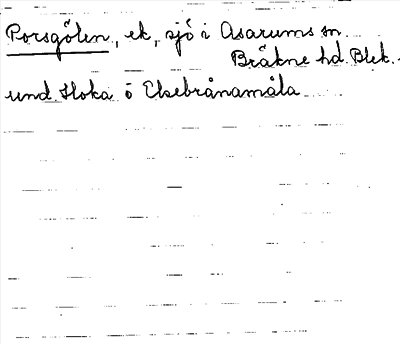 Porsgölen, ek, sjö i Asarums sn.
Bräkne hd. Blek.
und. Hoka ö Elsebrånamåla